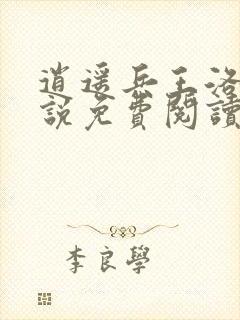 逍遥兵王洛
說免費閱讀
李良學